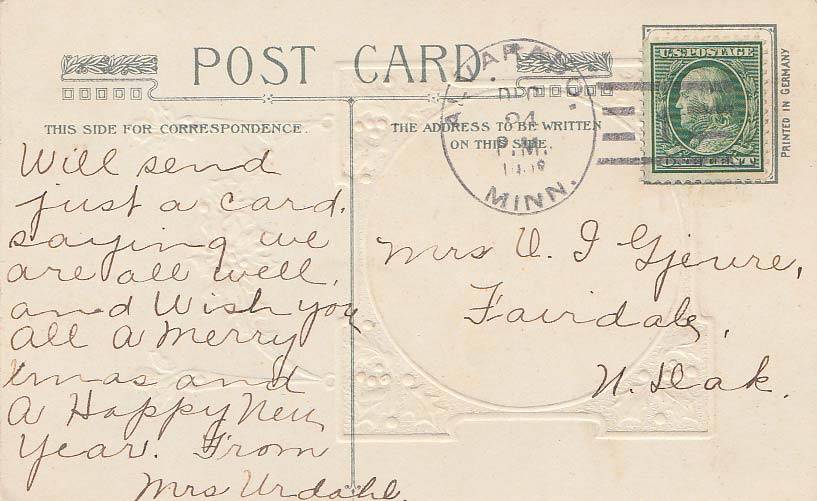 POST CARD
U.S. POSTAGE
ONE CENT
PRINTED IN GERMANY
ALVARADO.
DEC
24
P.M.
MINN.
THIS SIDE FOR CORRESPONDENCE.
THE ADDRESS TO BE WRITTEN
ON THIS SIDE.
Will send
just a card.
saying we
are all well,
and Wish you
all a Merry
Xmas and
A Happy New
Year. From
Mrs Urdahl.
Mrs O. I Gjevre,
Fairdale,
N. Dak.